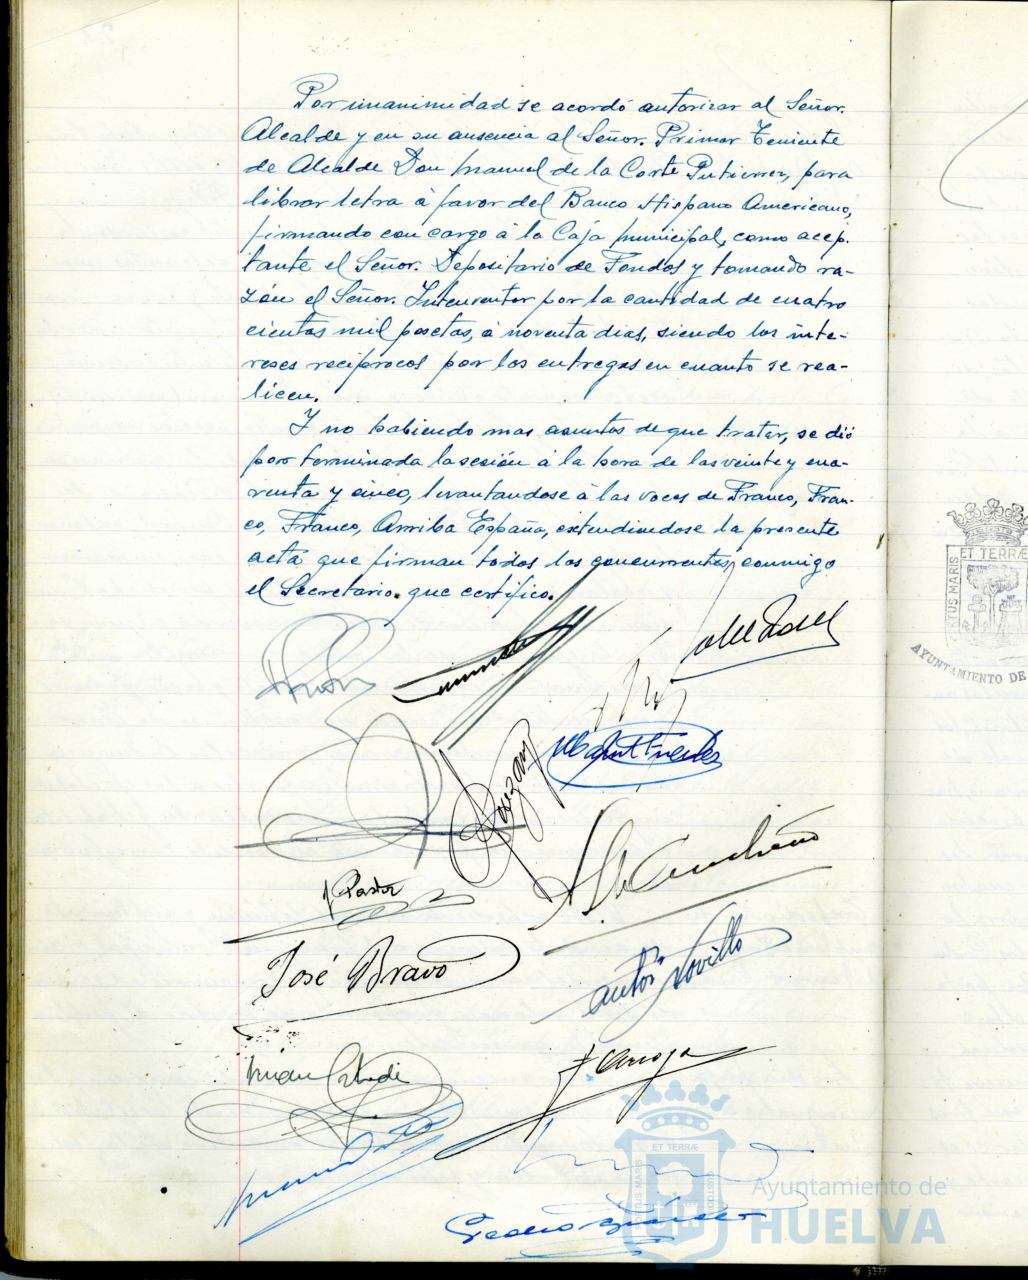 Por unanimidad se acordó autorizar al Señor.
Alcalde y en su ausencia al Señor. Primer Teniente
de Alcalde Don Manuel de la Corte Gutierrez, para
librar letra á favor del Banco Hispano Americano,
firmando con cargo á la Caja municipal, como acep-
tante el Señor. Depositario de Fondos y tomando ra-
zón el Señor. Interventor por la cantidad de cuatro
cientas mil pesetas, á noventa dias, siendo los inte-
reses reciprocos por las entregas en cuanto se rea-
licen.
Y no habiendo mas asuntos de que tratar, se dió
por terminada la sesión á la hora de las veinte y cua-
renta y cinco, levantandose á las voces de Franco, Fran-
co, Franco, Arriba España, extendiendose la presente
acta que firman todos los concurrentes, conmigo
el Secretario. que certifico.
J Pastor
José Bravo
ET TERRÆ
AYUNTAMIENTO DE
ET TERRÆ
Ayuntamiento de
HUELVA